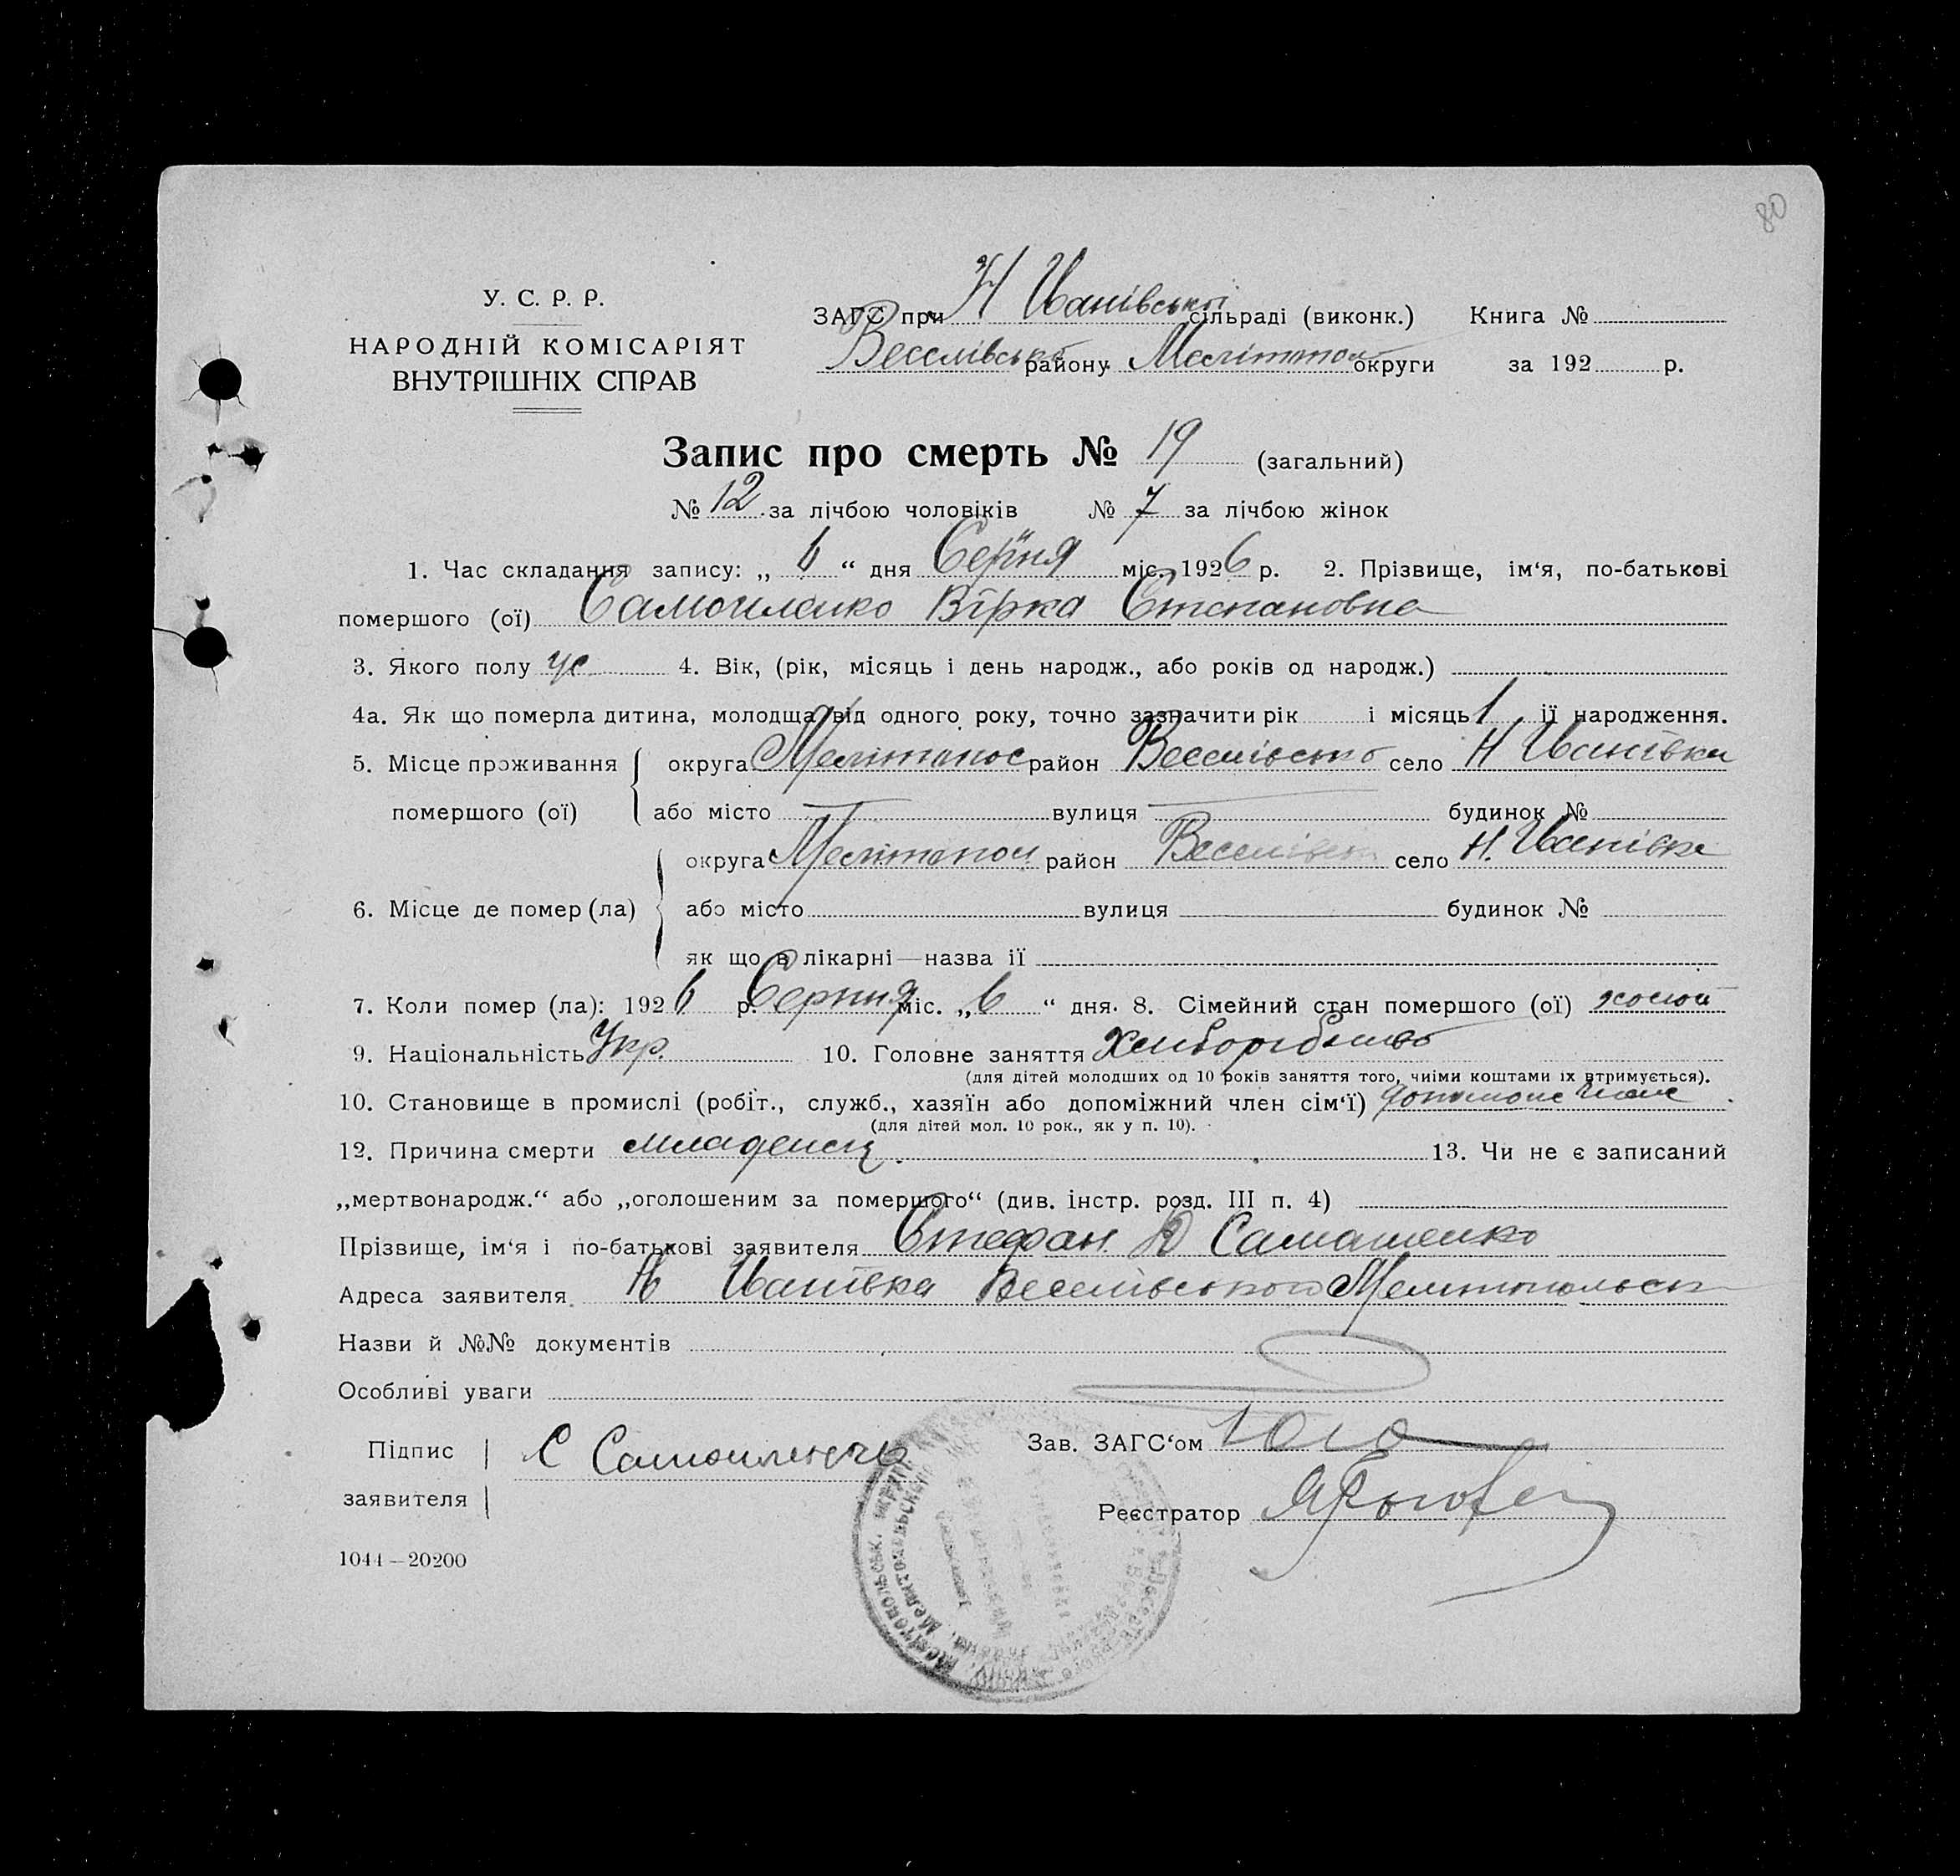 80
У. С. Р. Р.
НАРОДНІЙ КОМІСАРІЯТ
ВНУТРІШНІХ СПРАВ
ЗАГС при Н Іванівській сільраді (виконк.) Книга №
Веселівсько району Меліттоп округи за 192 р.
Запис про смерть № 19 (загальний)
№ 12 за лічбою чоловіків № 7 за лічбою жінок
1. Час складання запису: „ 6 “ дня Серпня міс. 1926 р. 2. Прізвище, ім‘я, по-батькові
помершого (ої) Самойленко Вірка Степановна
3. Якого полу 4. Вік, (рік, місяць і день народж., або років од народж.)
4а. Як що померла дитина, молодща від одного року, точно зазначити рік і місяць 1 ії народження.
5. Місце проживання округа Мелітопол район Веселівсько село Н Іванівка
помершого (ої) або місто вулиця будинок №
округа Мелітопол район Веселівсь село Н. Іванівка
6. Місце де помер (ла) або місто вулиця будинок №
як що в лікарні—назва ії
7. Коли помер (ла): 1926 р. Серпня міс. „ 6 “ дня. 8. Сімейний стан помершого (ої) холост
9. Національність Укр. 10. Головне заняття Хліборобство
(для дітей молодших од 10 років заняття того, чиїми коштами їх втримується).
10. Становище в промислі (робіт., служб., хазяїн або допоміжний член сім‘ї)
(для дітей мол. 10 рок., як у п. 10).
12. Причина смерти младенец. 13. Чи не є записаний
„мертвонародж.“ або „оголошеним за помершого“ (див. інстр. розд. III п. 4)
Прізвище, ім‘я і по-батькові заявителя Стефан Самойленко
Адреса заявителя Н Іванівка Веселівського Мелітопольск
Назви й №№ документів
Особливі уваги
Підпис С Самойленко Зав. ЗАГС‘ом
заявителя Реєстратор
1044—20200